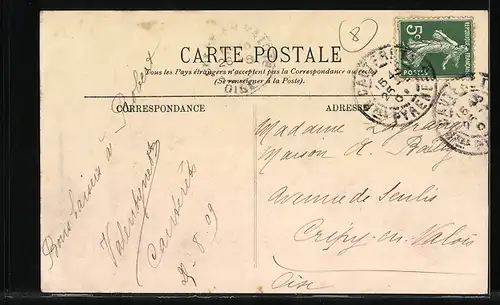 8
CARTE POSTALE
Tous les Pays étrangers n'acceptent pas la Correspondance au recto
(Se renseigner à la Poste).
CORRESPONDANCE
ADRESSE
5c
POSTES
REPUBLIQUE FRANÇAISE
CAUTERETS
25
PYRENEES
OISE
Bons baisers à Robert
Cauterets
25-8-09
Madame
Maison A.
Avenue de Senlis
Crépy-en-Valois
Oise